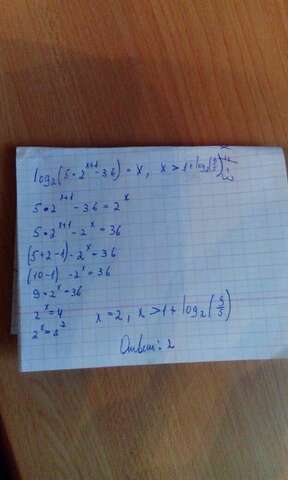 log₂(5·2ˣ⁺¹-36)=x, x>1+log₂(9/5)
5·2ˣ⁺¹-36=2ˣ
5·2ˣ⁺¹-2ˣ=36
(5·2-1)·2ˣ=36
(10-1)·2ˣ=36
9·2ˣ=36
2ˣ=4
2ˣ=2² x=2, x>1+log₂(9/5)
Ответ: 2